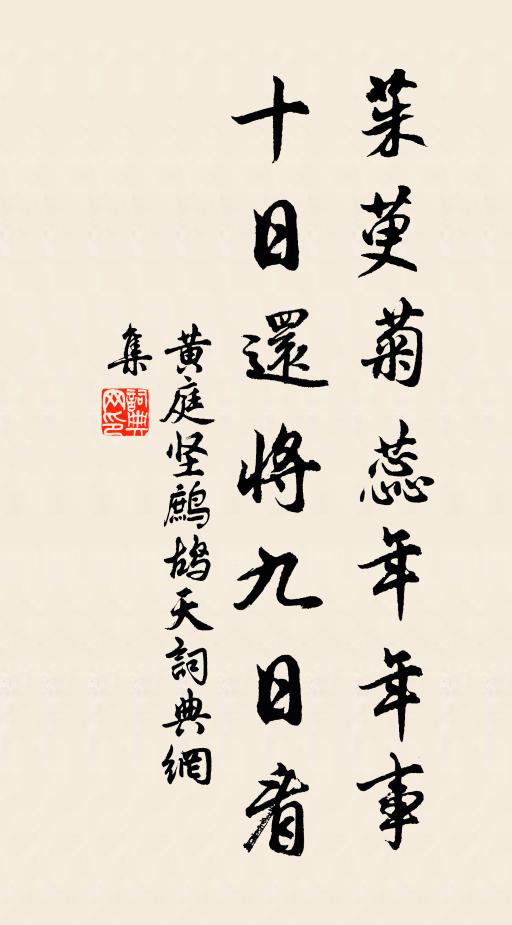 茱萸菊蕊年年事
十日還將九日看
黄庭坚鷓鴣天詞典網
集
詞典网印